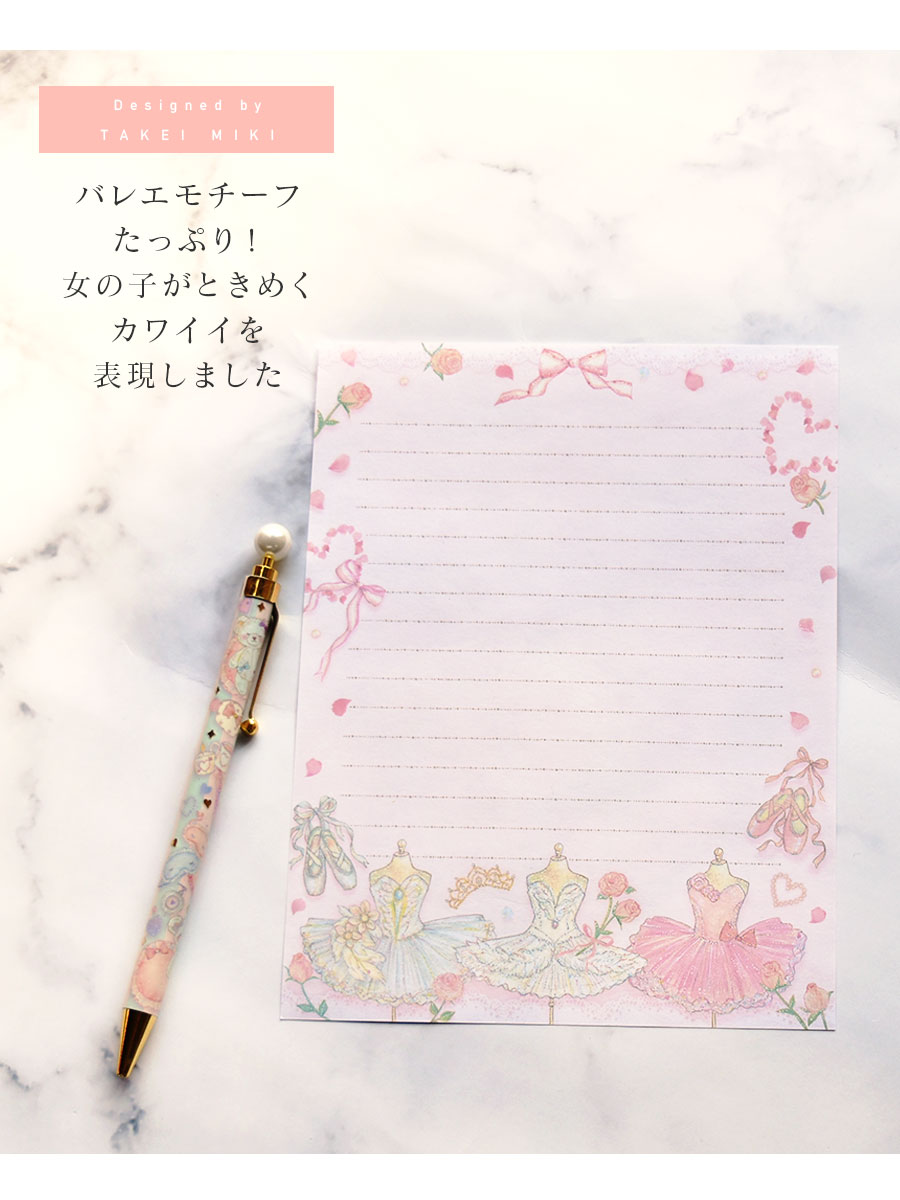 Designed by
TAKEI MIKI
バレエモチーフ
たっぷり！
女の子がときめく
カワイイを
表現しました